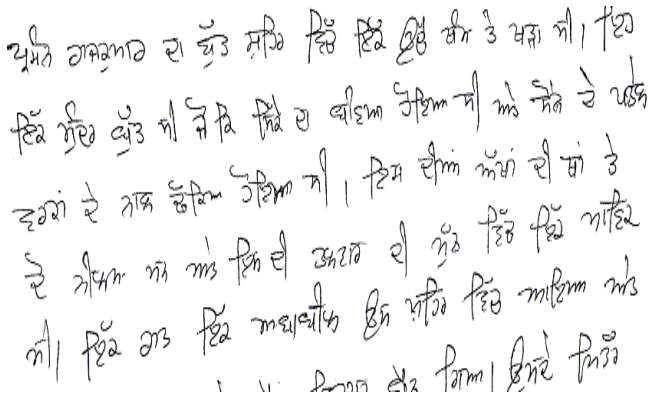 ਪ੍ਰਸੰਨ ਰਾਜਕੁਮਾਰ ਦਾ ਬੁੱਤ ਸ਼ਹਿਰ ਵਿੱਚ ਇੱਕ ਉੱਚੇ ਥੰਮ ਤੇ ਖੜਾ ਸੀ। ਇਹ
ਇੱਕ ਸੁੰਦਰ ਬੁੱਤ ਸੀ ਜੋ ਕਿ ਸਿੱਕੇ ਦਾ ਬਣਿਆ ਹੋਇਆ ਸੀ ਅਤੇ ਸੋਨੇ ਦੇ ਪਤਲੇ
ਵਰਕਾਂ ਦੇ ਨਾਲ ਢੱਕਿਆ ਹੋਇਆ ਸੀ। ਇਸ ਦੀਆਂ ਅੱਖਾਂ ਦੀ ਥਾਂ ਤੇ
ਦੋ ਨੀਲਮ ਸਨ ਅਤੇ ਇਸ ਦੀ ਤਲਵਾਰ ਦੀ ਮੁੱਠ ਵਿੱਚ ਇੱਕ ਮਾਣਿਕ
ਸੀ। ਇੱਕ ਰਾਤ ਇੱਕ ਅਬਾਬੀਲ ਉਸ ਸ਼ਹਿਰ ਵਿੱਚ ਆਇਆ ਅਤੇ
ਗਿਆ। ਉਸਦੇ ਮਿੱਤਰ